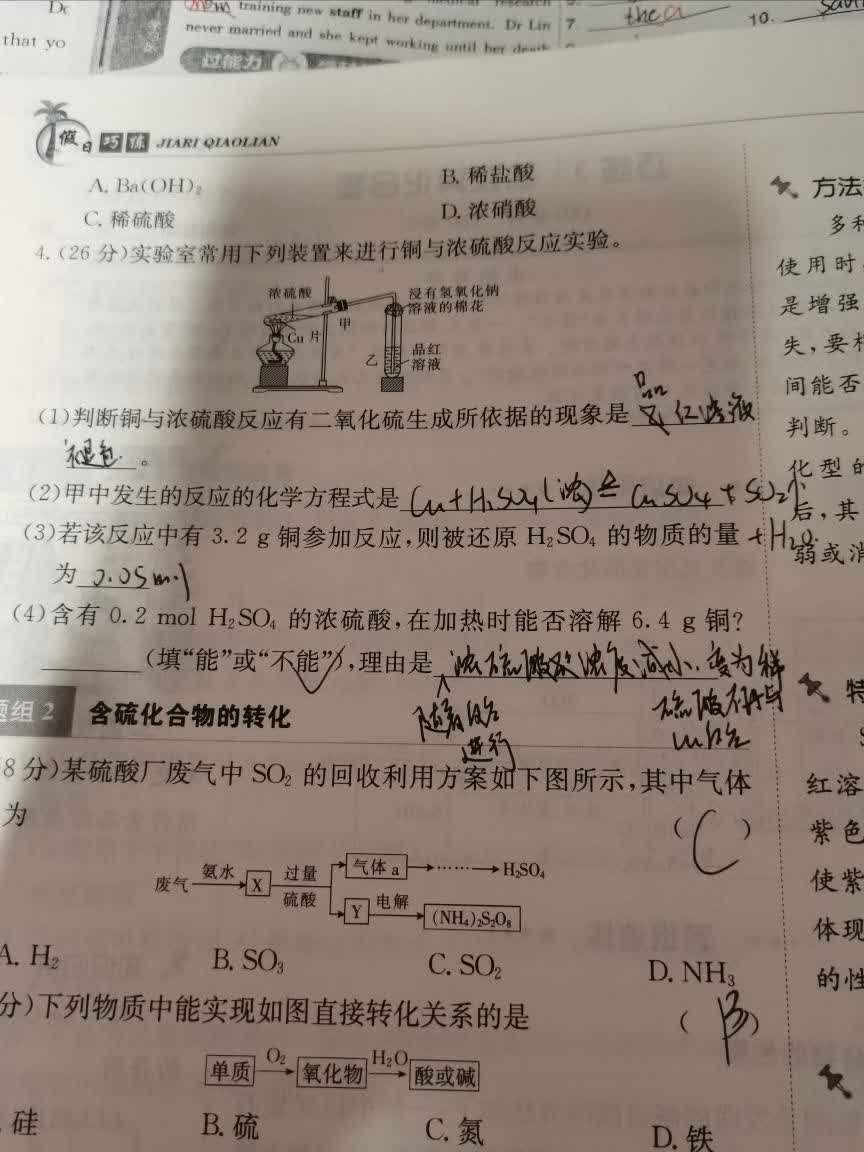 that yo
training new staff in her department. Dr Lin
never married and she kept working until her death
过能力
7
the
10.
假日巧练 JIARI QIAOLIAN
A. Ba(OH)₂ B. 稀盐酸
C. 稀硫酸 D. 浓硝酸
4. (26分)实验室常用下列装置来进行铜与浓硫酸反应实验。
浓硫酸
浸有氢氧化钠
溶液的棉花
甲
Cu 片
乙
品红
溶液
(1)判断铜与浓硫酸反应有二氧化硫生成所依据的现象是 品红溶液
褪色。
(2)甲中发生的反应的化学方程式是 Cu+H₂SO₄(浓)≜CuSO₄+SO₂↑
+H₂O
(3)若该反应中有 3.2 g 铜参加反应,则被还原 H₂SO₄ 的物质的量
为 0.05mol
(4)含有 0.2 mol H₂SO₄ 的浓硫酸,在加热时能否溶解 6.4 g 铜?
(填“能”或“不能”),理由是 浓硫酸 浓度减小.变为稀
硫酸不再与
进行
题组2 含硫化合物的转化
8分)某硫酸厂废气中 SO₂ 的回收利用方案如下图所示,其中气体
为 ( C )
废气 氨水 X 过量 硫酸 气体 a …… H₂SO₄
Y 电解 (NH₄)₂S₂O₈
A. H₂ B. SO₃ C. SO₂ D. NH₃
分)下列物质中能实现如图直接转化关系的是 ( B )
单质 O₂ 氧化物 H₂O 酸或碱
硅 B. 硫 C. 氮 D. 铁
方法
多种
使用时
是增强
失,要
间能否
判断。
化型的
后,其
弱或消
特
红溶
紫色
使紫
体现
的性